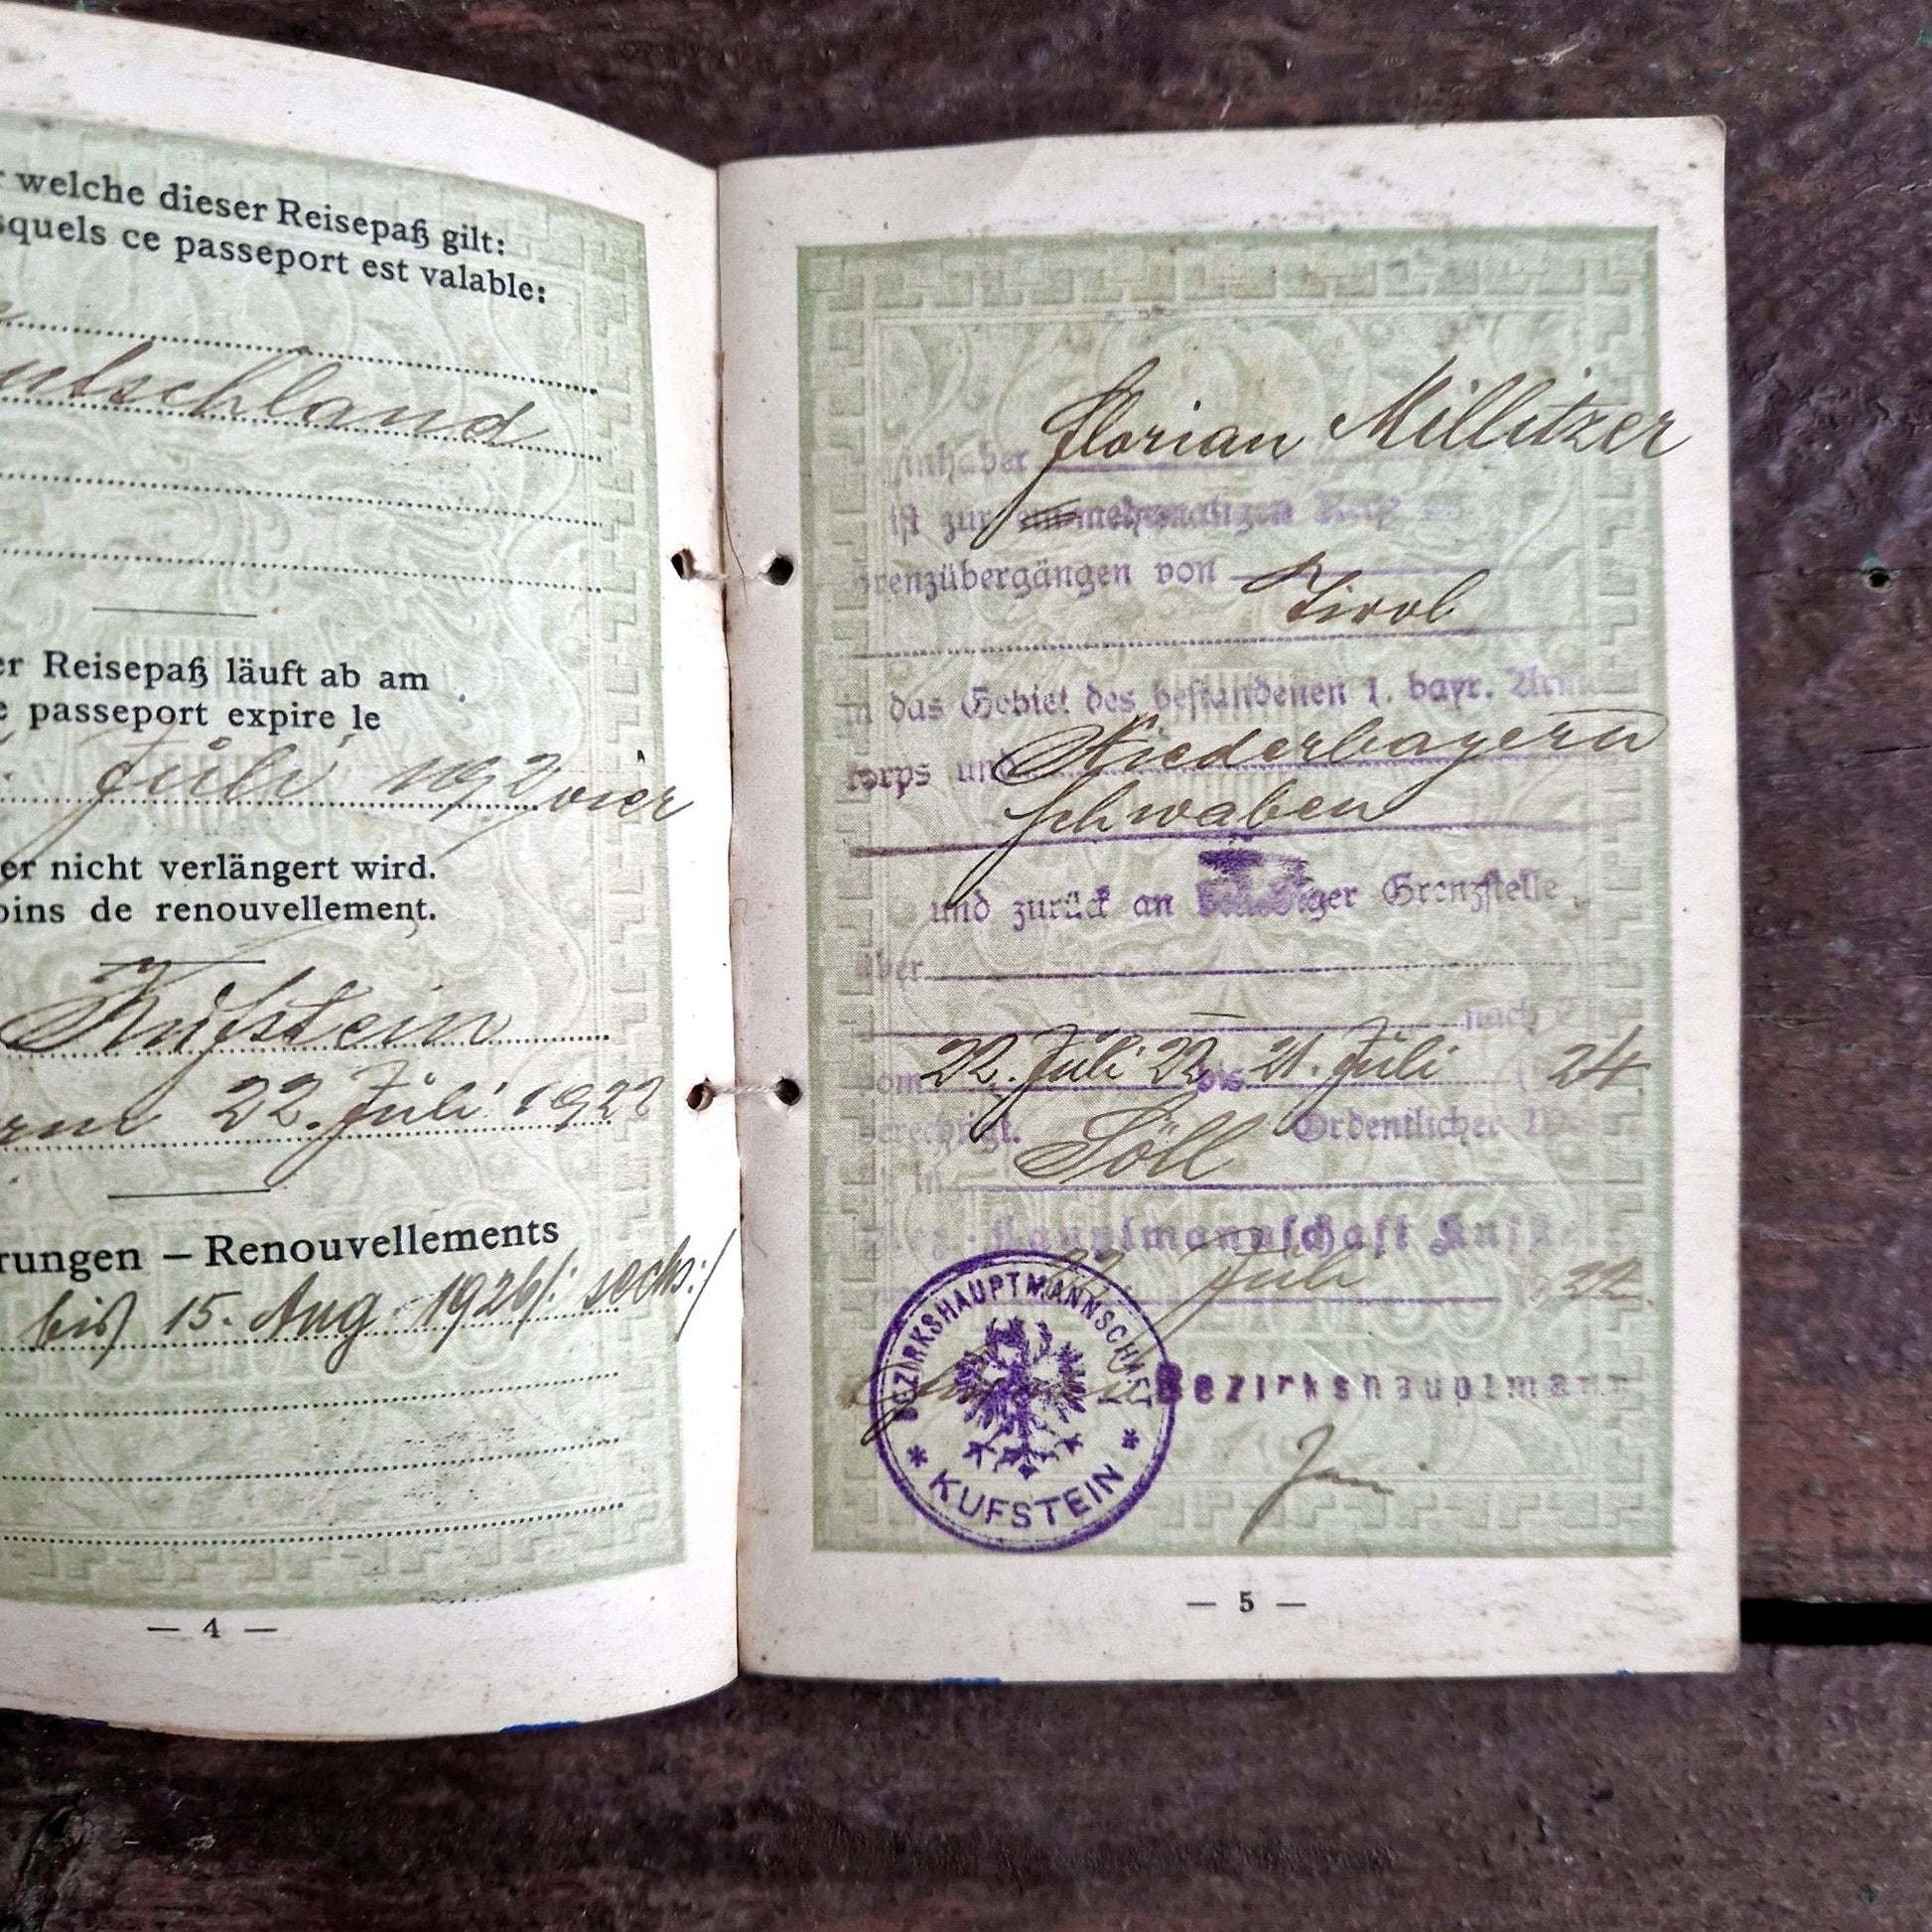 welche dieser Reisepaß gilt:
squels ce passeport est valable:
utschland
er Reisepaß läuft ab am
e passeport expire le
Juli 192vier
er nicht verlängert wird.
oins de renouvellement.
Kufstein
22. Juli 1922
rungen — Renouvellements
bis 15. Aug 1926/: sechs:/
— 4 —
Florian Millitzer
Inhaber
ist zur ein-mehrmaligen
Grenzübergängen von
Tirol
in das Gebiet des bestandenen 1. bayr. Arme
korps und Niederbayern
Schwaben
und zurück an beliebiger Grenzstelle
über
nach
vom 22. Juli 22 bis 21. Juli 24
berechtigt. Ordentlicher
in Söll
Hauptmannschaft Kufste
22. Juli 1922.
BEZIRKSHAUPTMANNSCHAFT
* KUFSTEIN *
Bezirkshauptmann
— 5 —